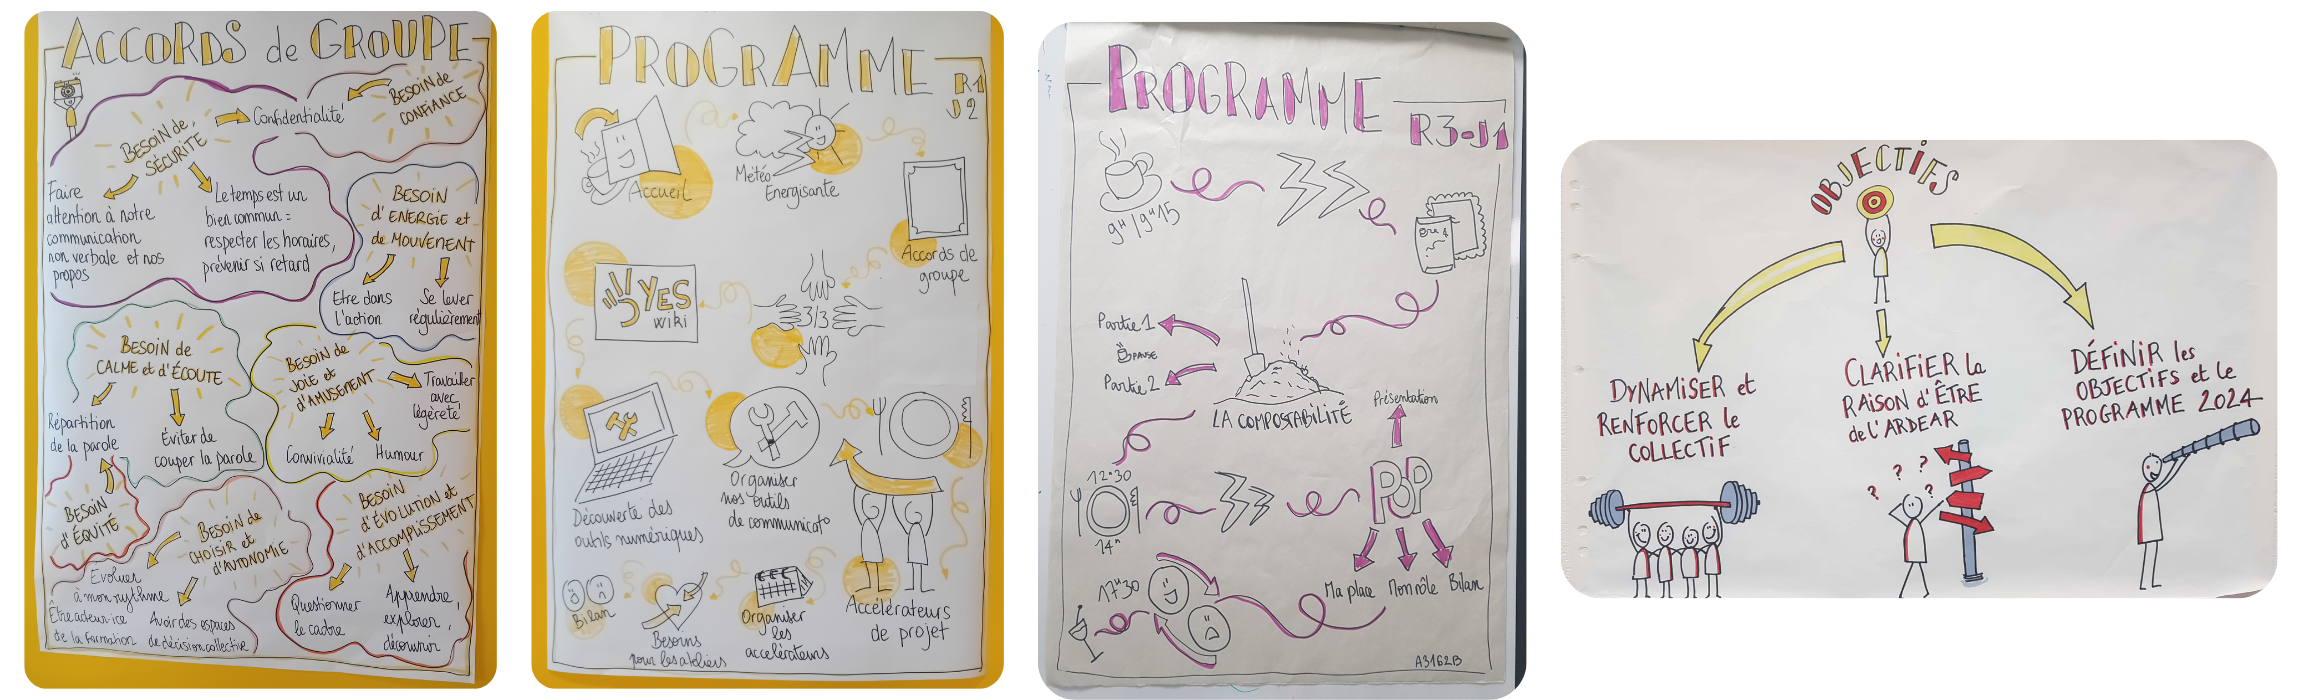 ACCORDS de GROUPE
BESOIN de
CONFIANCE
Confidentialité
BESOIN de
SÉCURITÉ
Faire
attention à notre
communication
non verbale et nos
propos
Le temps est un
bien commun :
respecter les horaires,
prévenir si retard
BESOIN
d'ENERGIE et
de MOUVEMENT
Etre dans
l'action
Se lever
régulièrement
BESOIN de
CALME et d'ÉCOUTE
Répartition
de la parole
Éviter de
couper la parole
BESOIN de
JOIE et
d'AMUSEMENT
Travailler
avec
légèreté
Convivialité
Humour
BESOIN
d'ÉQUITÉ
BESOIN de
CHOISIR et
d'AUTONOMIE
Évoluer
à mon rythme
Être acteur·ice
de la formation
Avoir des espaces
de décision collective
BESOIN
d'ÉVOLUTION et
d'ACCOMPLISSEMENT
Questionner
le cadre
Apprendre,
explorer,
découvrir
PROGRAMME
R1
J2
Accueil
Météo
Energisante
Accords de
groupe
3/3
YES
wiki
Découverte des
outils numériques
Organiser
nos outils
de communicat°
Accélérateurs
de projet
Organiser
les
accélérateurs
Besoins
pour les ateliers
Bilan
PROGRAMME
R3-J1
9H/9H15
Partie 1
PAUSE
Partie 2
LA COMPOSTABILITÉ
Présentation
12H30
14H
POP
Ma place
Mon rôle
Bilan
17H30
A3162B
OBJECTIFS
DYNAMISER et
RENFORCER le
COLLECTIF
CLARIFIER la
RAISON d'ÊTRE
de l'ARDEAR
? ? ? ?
DÉFINIR les
OBJECTIFS et le
PROGRAMME 2024